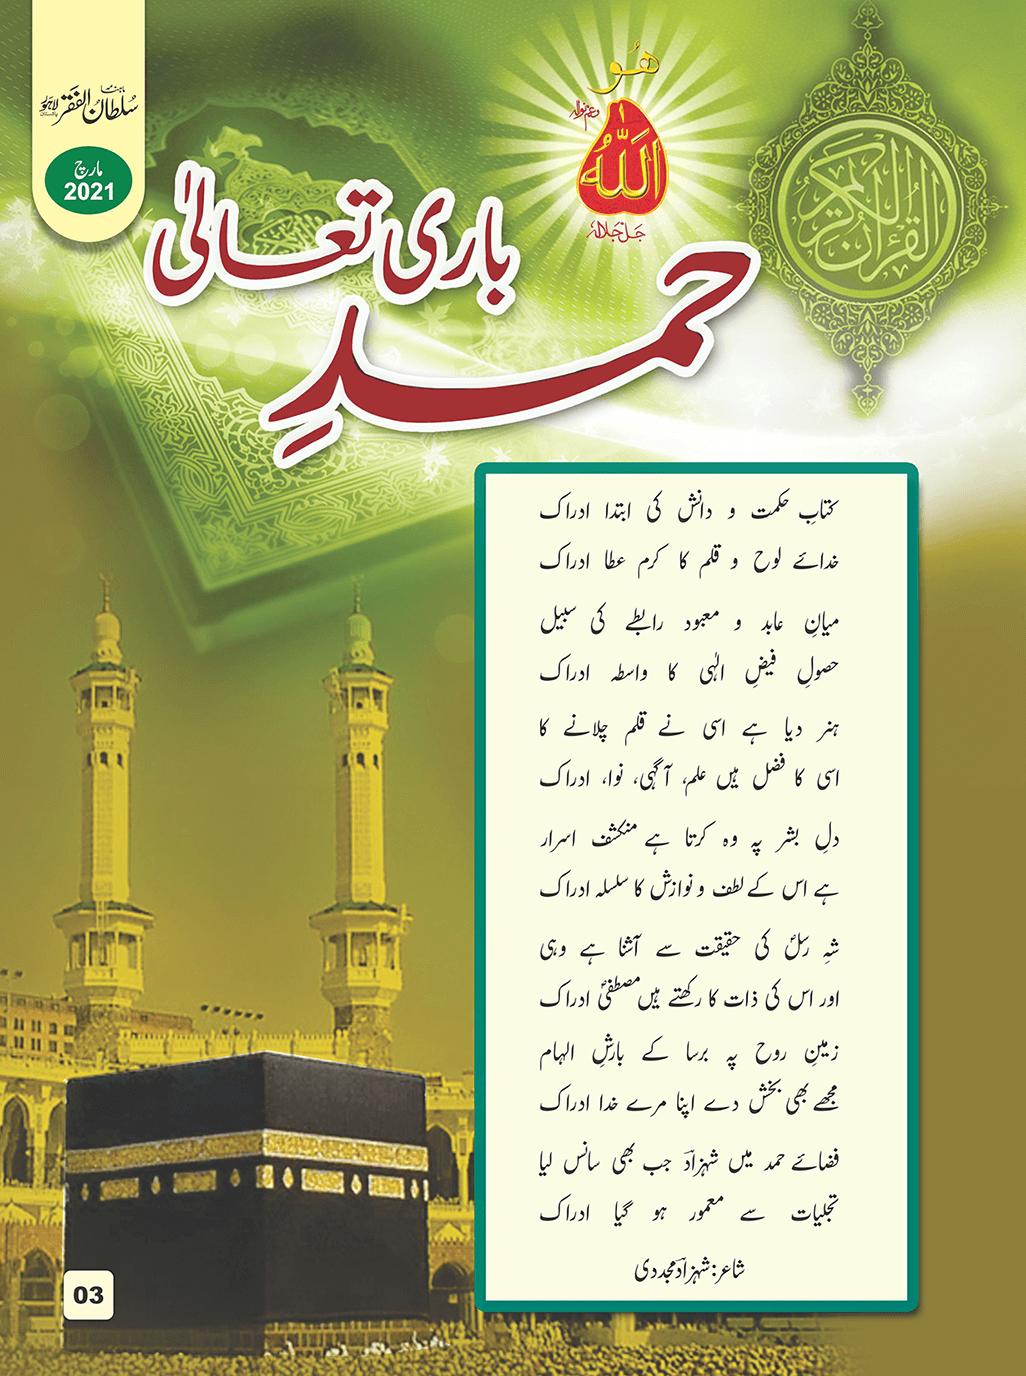 ماہنامہ
سلطان الفقر لاہور
مارچ
2021
ھُو
اللہ
جل جلالہٗ
القرآن الکریم
حمدِ باری تعالیٰ
کتابِ حکمت و دانش کی ابتدا ادراک
خدائے لوح و قلم کا کرم عطا ادراک
میانِ عابد و معبود رابطے کی سبیل
حصولِ فیضِ الٰہی کا واسطہ ادراک
ہنر دیا ہے اسی نے قلم چلانے کا
اسی کا فضل ہیں علم، آگہی، نوا، ادراک
دلِ بشر پہ وہ کرتا ہے منکشف اسرار
ہے اس کے لطف و نوازش کا سلسلہ ادراک
شہِ رسلؐ کی حقیقت سے آشنا ہے وہی
اور اس کی ذات کا رکھتے ہیں مصطفیؐ ادراک
زمینِ روح پہ برسا کے بارشِ الہام
مجھے بھی بخش دے اپنا مرے خدا ادراک
فضائے حمد میں شہزادؔ جب بھی سانس لیا
تجلیات سے معمور ہو گیا ادراک
شاعر: شہزادؔ مجددی
03